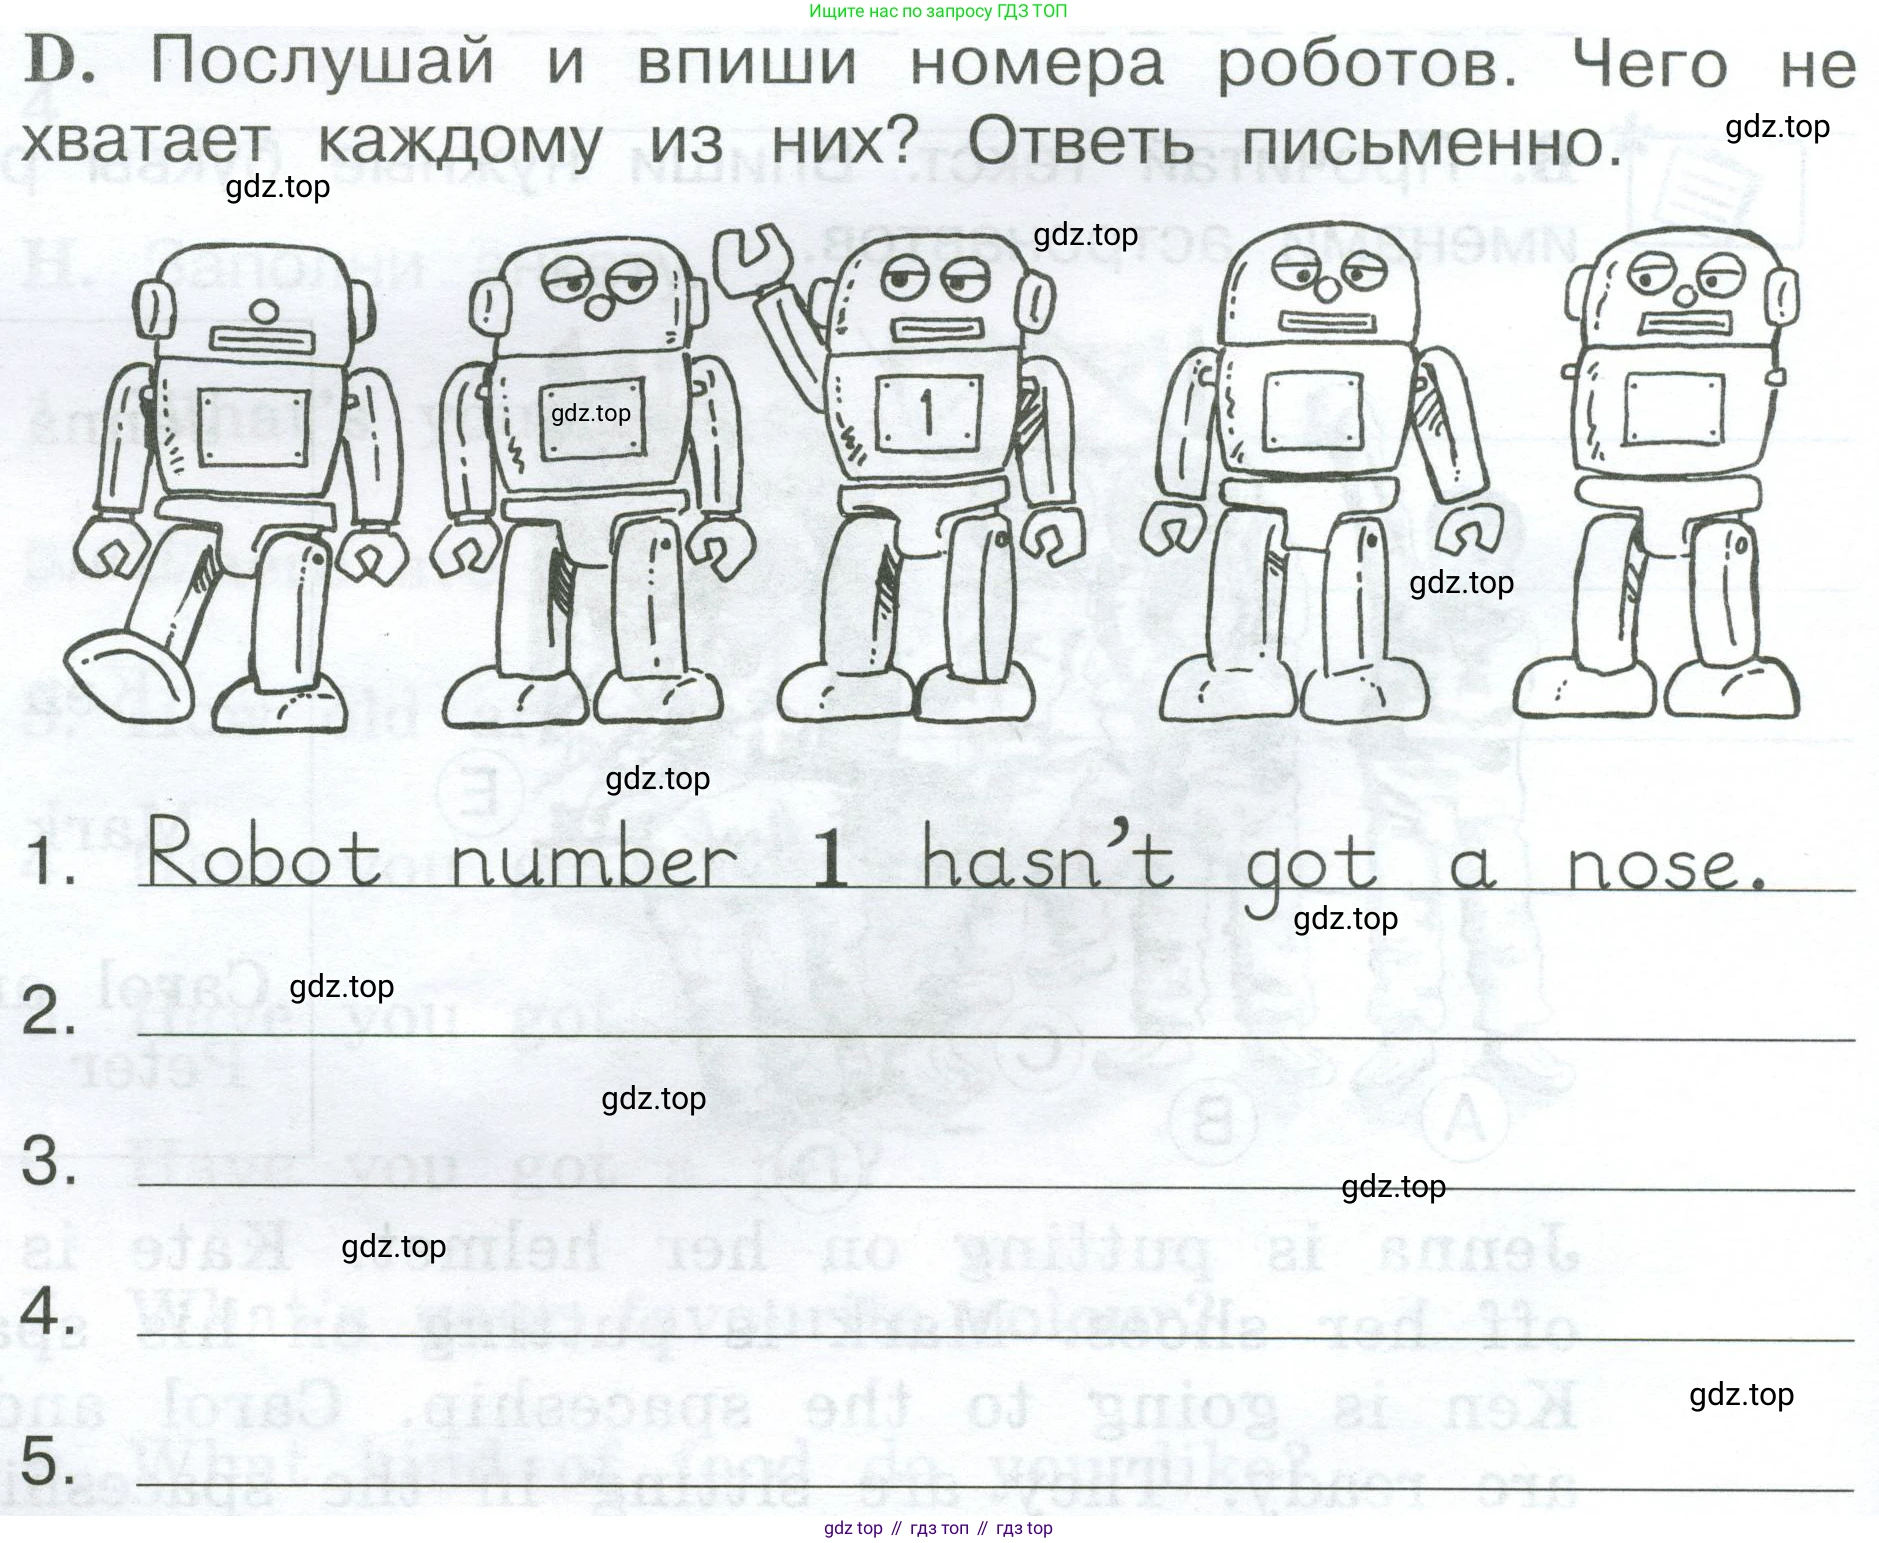 Ищите нас по запросу ГДЗ ТОП
D. Послушай и впиши номера роботов. Чего не
хватает каждому из них? Ответь письменно.
gdz.top
gdz.top
gdz.top
gdz.top
1
gdz.top
gdz.top
1. Robot number 1 hasn't got a nose.
gdz.top
2.
gdz.top
gdz.top
3.
gdz.top
gdz.top
4.
gdz.top
5.
gdz top // гдз топ // гдз top